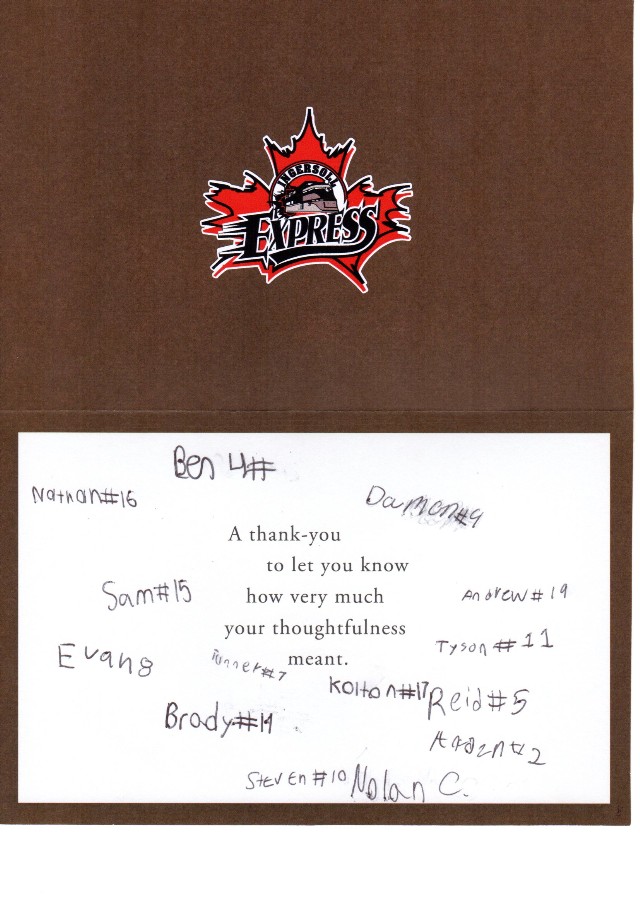 INGERSOLL
EXPRESS
Ben 4#
Nathan#16
Damon#9
A thank-you
to let you know
how very much
your thoughtfulness
meant.
Sam#15
Andrew#19
Tyson#11
Evan8
Turner#7
Kolton#17
Reid#5
Brady#14
#2
Steven#10
Nolan C.